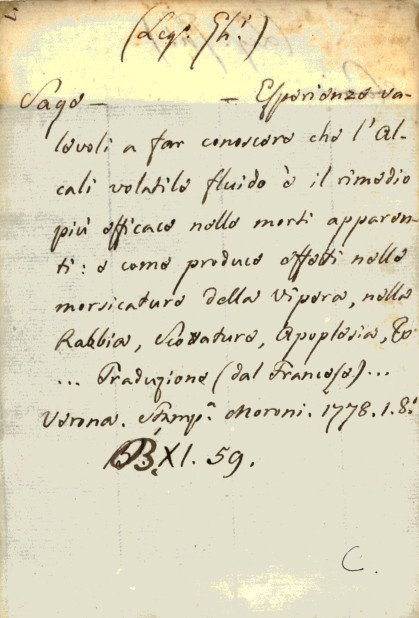 (Leg. Gh.)
Sage — — Esperienze va-
levoli a far conoscere che l'Al-
cali volatile fluido è il rimedio
più efficace nelle morti apparen-
ti: e come produce effetti nelle
morsicature della Vipera, nella
Rabbia, Scottature, Apoplesia, &c.
... Traduzione (dal Francese)...
Verona. Stamp.ª Moroni. 1778. 1. 8.º
B. XI. 59.
C.